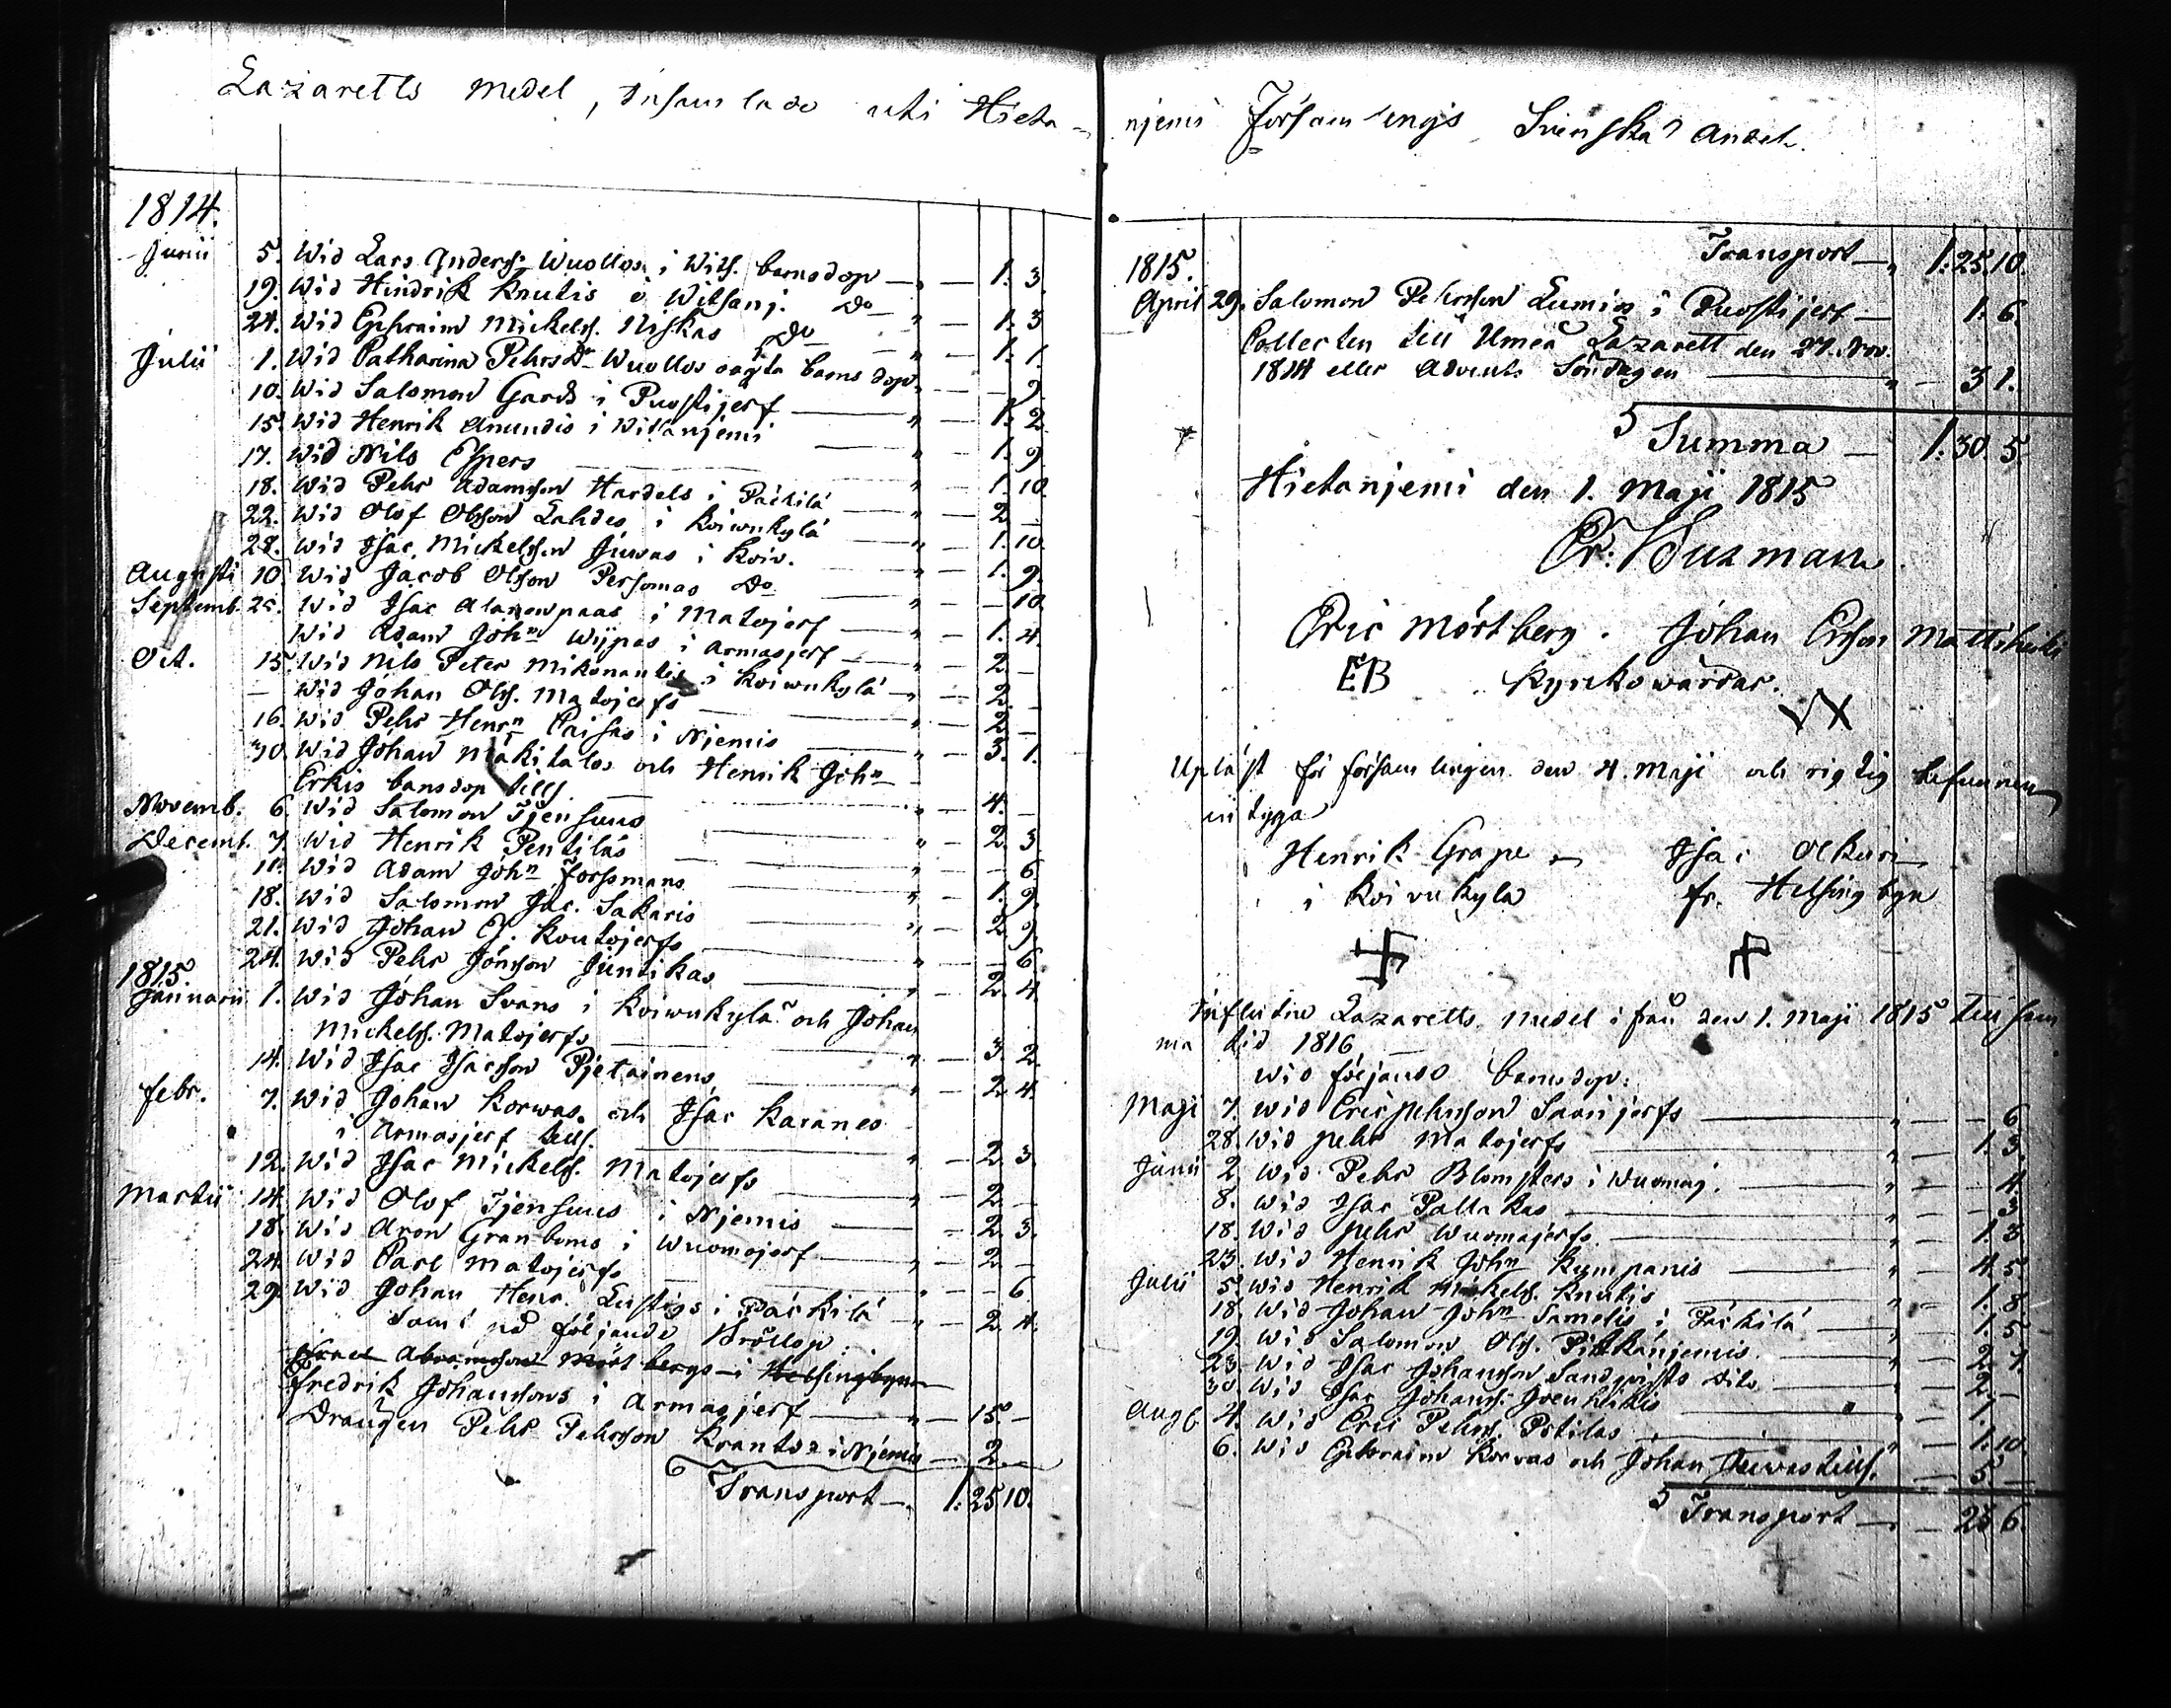 Lazaretts medel, Insamlade uti Hieta-
1814.
Junii 5. Wid Lars Anders: Wuollos i Wits. barnsdop — " — 1. 3.
19. Wid Hindrik Knutis i Witsanj. Do — " — 1. 3
24. Wid Ephraim Mickels. Niskas Do — " — 1. 1.
Julii 1. Wid Catharina Pehrs Dr Wuollos oägta barnsdop — 9.
10. Wid Salomon Gards i Puostijerf — " — 1. 2
15. Wid Henrik Anundis i Witsanjemi — " — 1. 9
17. Wid Nils Espers — " — 1. 10
18. Wid Pehr Adamsson Hardels i Päckilä — " — 2. —
22. Wid Olof Olsson Lahdes i Koiwukylä — " — 1. 10.
28. Wid Isac Mickelsson Juwas i Koiv. — " — 1. 9.
Augusti 10. Wid Jacob Olsson Persomas Do — " — — 10.
Septemb. 25. Wid Isac Alanenpaas i Matojerf — " — 1. 4.
Wid Adam Johns Wijpas i Armasjerf — " — 2. —
Oct. 15. Wid Nils Peter Mikonantis i Koiwukylä — " — 2. —
— Wid Johan Ols. Matojerfs — " — 2. —
16. Wid Pehr Henrn Paisas i Njemis — " — 3. 1.
30. Wid Johan Mäkitalos och Henrik John
Erkis bansdop tills. — " — 4. —
Novemb. 6. Wid Salomon Tjensuus — " — 2. 3.
Decemb. 7. Wid Henrik Pentiläs — " — — 6.
11. Wid Adam John Forssmans — " — 1. 9.
18. Wid Salomon Jac. Sakaris — " — 2. 9.
21. Wid Johan E. Koutojerfs — — 6.
24. Wid Pehr Jönsson Juntikas — " — 2. 4.
1815.
Januarii 1. Wid Johan Svans i Koiwukylä och Johan
Mickels. Matojerfs — " — 3. 2.
14. Wid Isac Isacsson Pjetainens — " — 2. 4.
Febr. 7. Wid Johan Korwas och Isac Karanes
i Armasjerf tills. — " — 2. 3.
12. Wid Isac Mickels. Matojerfs — " — 2. —
Martii 14. Wid Olof Tjensuus i Njemis — " — 2. 3.
18. Wid Aron Granboms i Wuomojerf — " — 2. —
24. Wid Carl Matojerfs — " — — 6.
29. Wid Johan Henr. Lustigs i Päckilä — " — 2. 4.
Samt på följande Bröllop:
Abramsson Mört bergs i Helsingbyn
Fredrik Johanssons i Armasjerf — " — 15. —
Drängen Pehr Pehrsson Krantz i Njemis — 2. —
Transport — 1. 25. 10.
njemi Församlings Svenska andel.
Transport — " 1. 25. 10.
1815.
April 29. Salomon Pehrsson Lumis i Puostijerf — 1. 6.
Collecten till Umeå Lazarett den 27. Nov.
1814 eller Advents Söndagen — " — 3 1.
Summa — 1. 30 5.
Hietanjemi den 1. Maji 1815
Eric Mörtberg. Johan Ersson
EB Kyrkovärdar.
Upläst för församlingen den 4. Maji och rigtig befunnen
intyga
Henrik Grape Isac Alkuri
i Koivukyla fr. Helsingbyn
Influtne Lazaretts medel ifrån den 1. Maji 1815 till sam
ma tid 1816
Wid följande barnsdop:
Maji 7. Wid Eric Pehrsson Saanijerfs — " — — 6.
28. Wid Pehr Matojerfs — " — 1. 3.
Junii 2. Wid Pehr Blomsters i Wuomaj. — " — — 4.
8. Wid Isac Pallakas — " — — 3
18. Wid Pehr Wuomajerfs — " — 1. 3
25. Wid Henrik John Kympanis — " — 4. 5
Julii 5. Wid Henrik Mickels. Knutis — " — 1. 8.
18. Wid Johan John Samelis i Päckilä — " — 1. 5
19. Wid Salomon Ols. Pitkänjemis — " — 2. 7
23. Wid Isac Johansson Sandqvists — " — 2. —
30. Wid Isac Johanss. — " — 1.
Aug. 4. Wid Eric Pehrs. — " — 1. 10.
6. Wid Ephraim Korvas och Johan Juwas tills. — 5 —
Transport — " — 25 6.